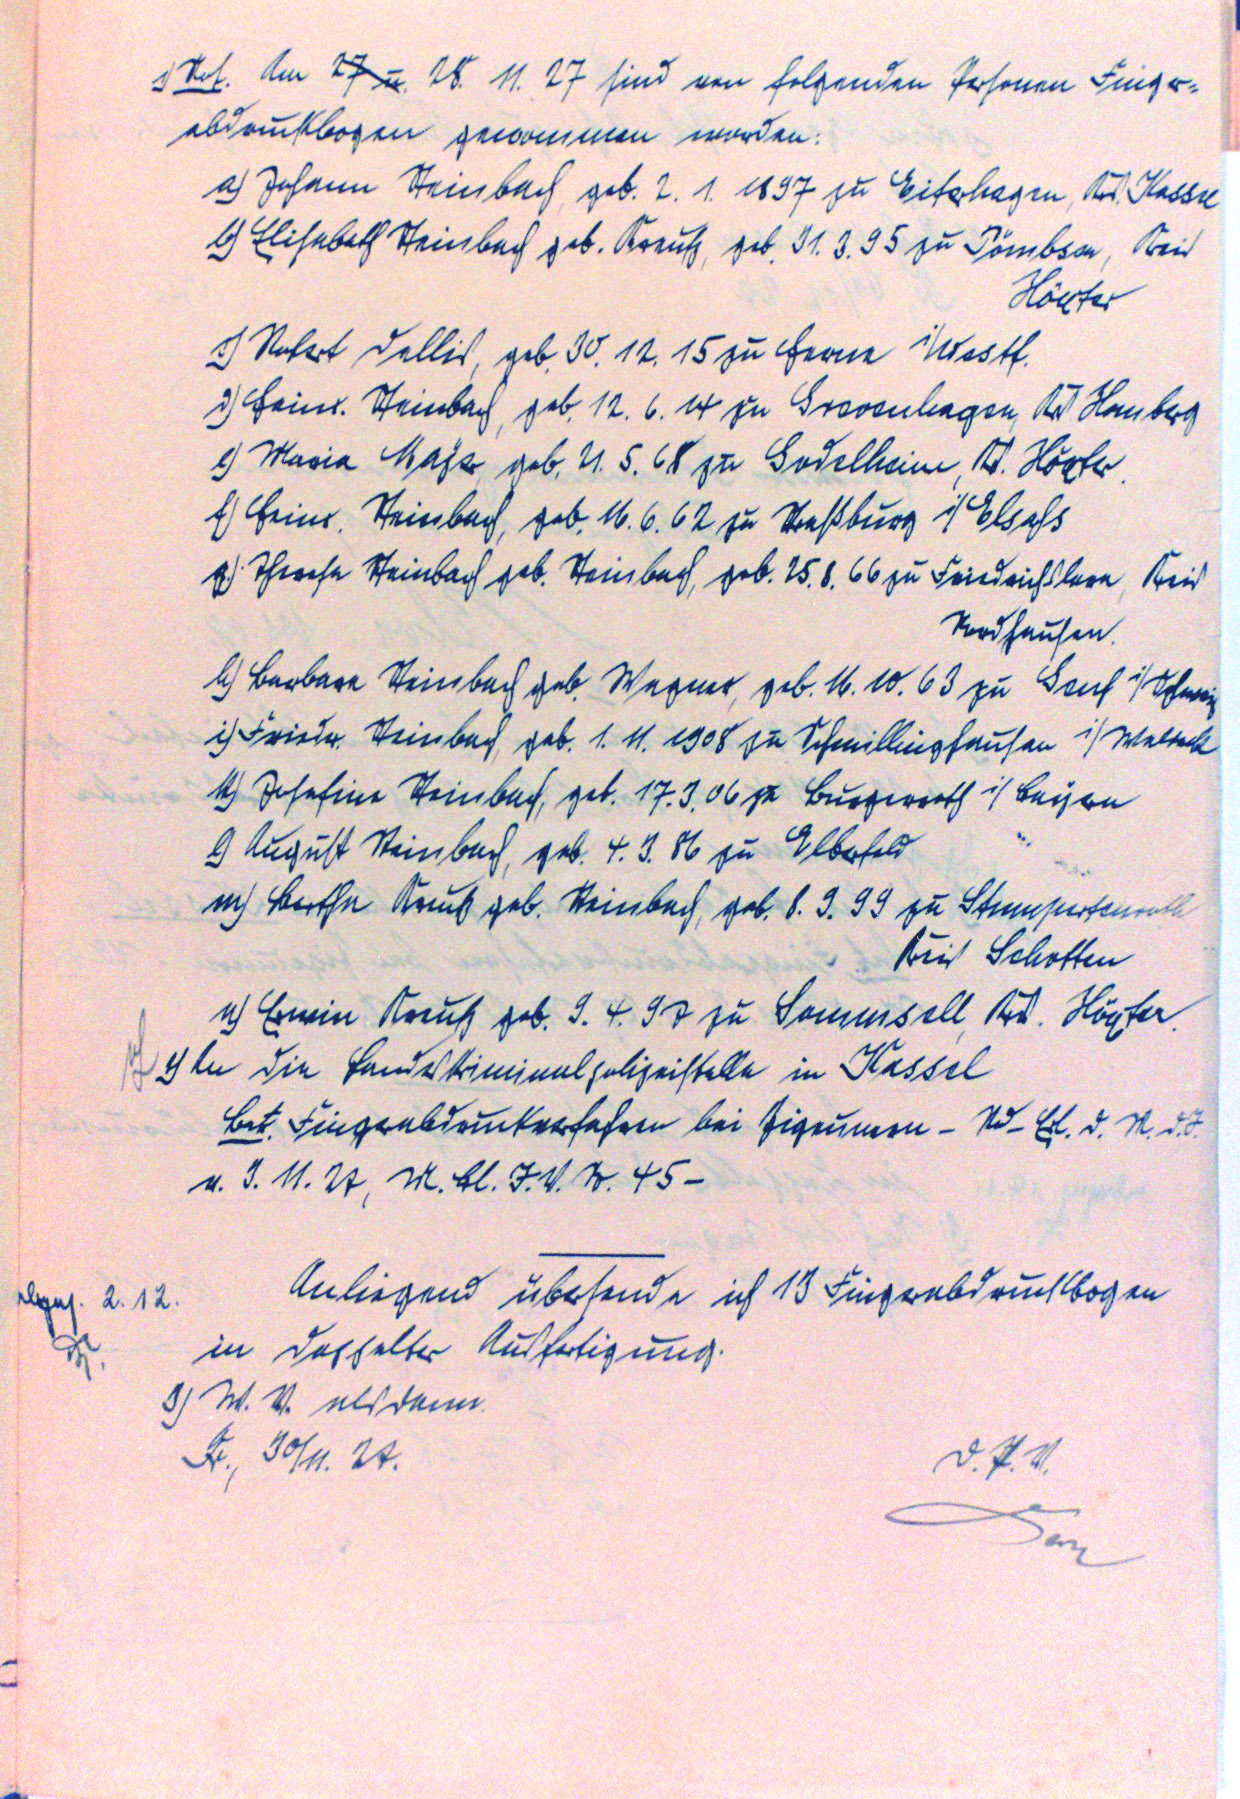 1) Not. Am 27 u. 28. 11. 27 sind von folgenden Personen Finger-
abdruckbogen genommen worden:
a) Johann Steinbach, geb. 2. 1. 1897 zu Eiterhagen, Krs. Kassel
b) Elisabeth Steinbach geb. Kreutz, geb. 31. 3. 95 zu Pömbsen, Kreis
Höxter
c) Robert Dellis, geb. 30. 12. 15 zu Herne i/Westf.
d) Heinr. Steinbach, geb. 12. 6. 14 zu Grevenhagen, Krs. Homberg
e) Maria Mayer, geb. 21. 5. 68 zu Godelheim, Kr. Höxter.
f) Heinr. Steinbach, geb. 16. 6. 62 zu Straßburg i/Elsass
g) Therese Steinbach geb. Steinbach, geb. 25. 8. 66 zu Friedrichslora, Kreis
Nordhausen.
h) Barbara Steinbach geb. Wagner, geb. 16. 10. 63 zu Genf i/Schweiz
i) Friedr. Steinbach, geb. 1. 11. 1908 zu Schmillinghausen i/Waldeck
k) Josefine Steinbach, geb. 17. 3. 06 zu Burgerroth i/Bayern
l) August Steinbach, geb. 4. 3. 86 zu Elberfeld
m) Bertha Kreutz geb. Steinbach, geb. 8. 9. 99 zu Stumpertenroth
Kreis Schotten
n) Erwin Kreutz geb. 9. 4. 97 zu Sommersell, Krs. Höxter.
2) An die Landeskriminalpolizeistelle in Kassel
Betr. Fingerabdruckverfahren bei Zigeunern – Rd-Erl. d. M. d. I.
v. 3. 11. 27, M. Bl. I. V. Nr. 45 –
Anliegend übersende ich 13 Fingerabdruckbogen
in doppelter Ausfertigung.
abges. 2. 12.
3) W. V. alsdann.
Fr., 30/11. 27.
D. P. V.